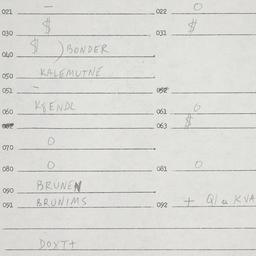 021 — 022 0
030 $ 031 $
040 $ ) BONDER
050 KALEMUTNE
051 - 052
060 KGENDL 061 0
062 063 $
070 0
080 0 081 0
090 BRUNEN
091 BRUNIMS 092 + Q/a KVA
DOXT+